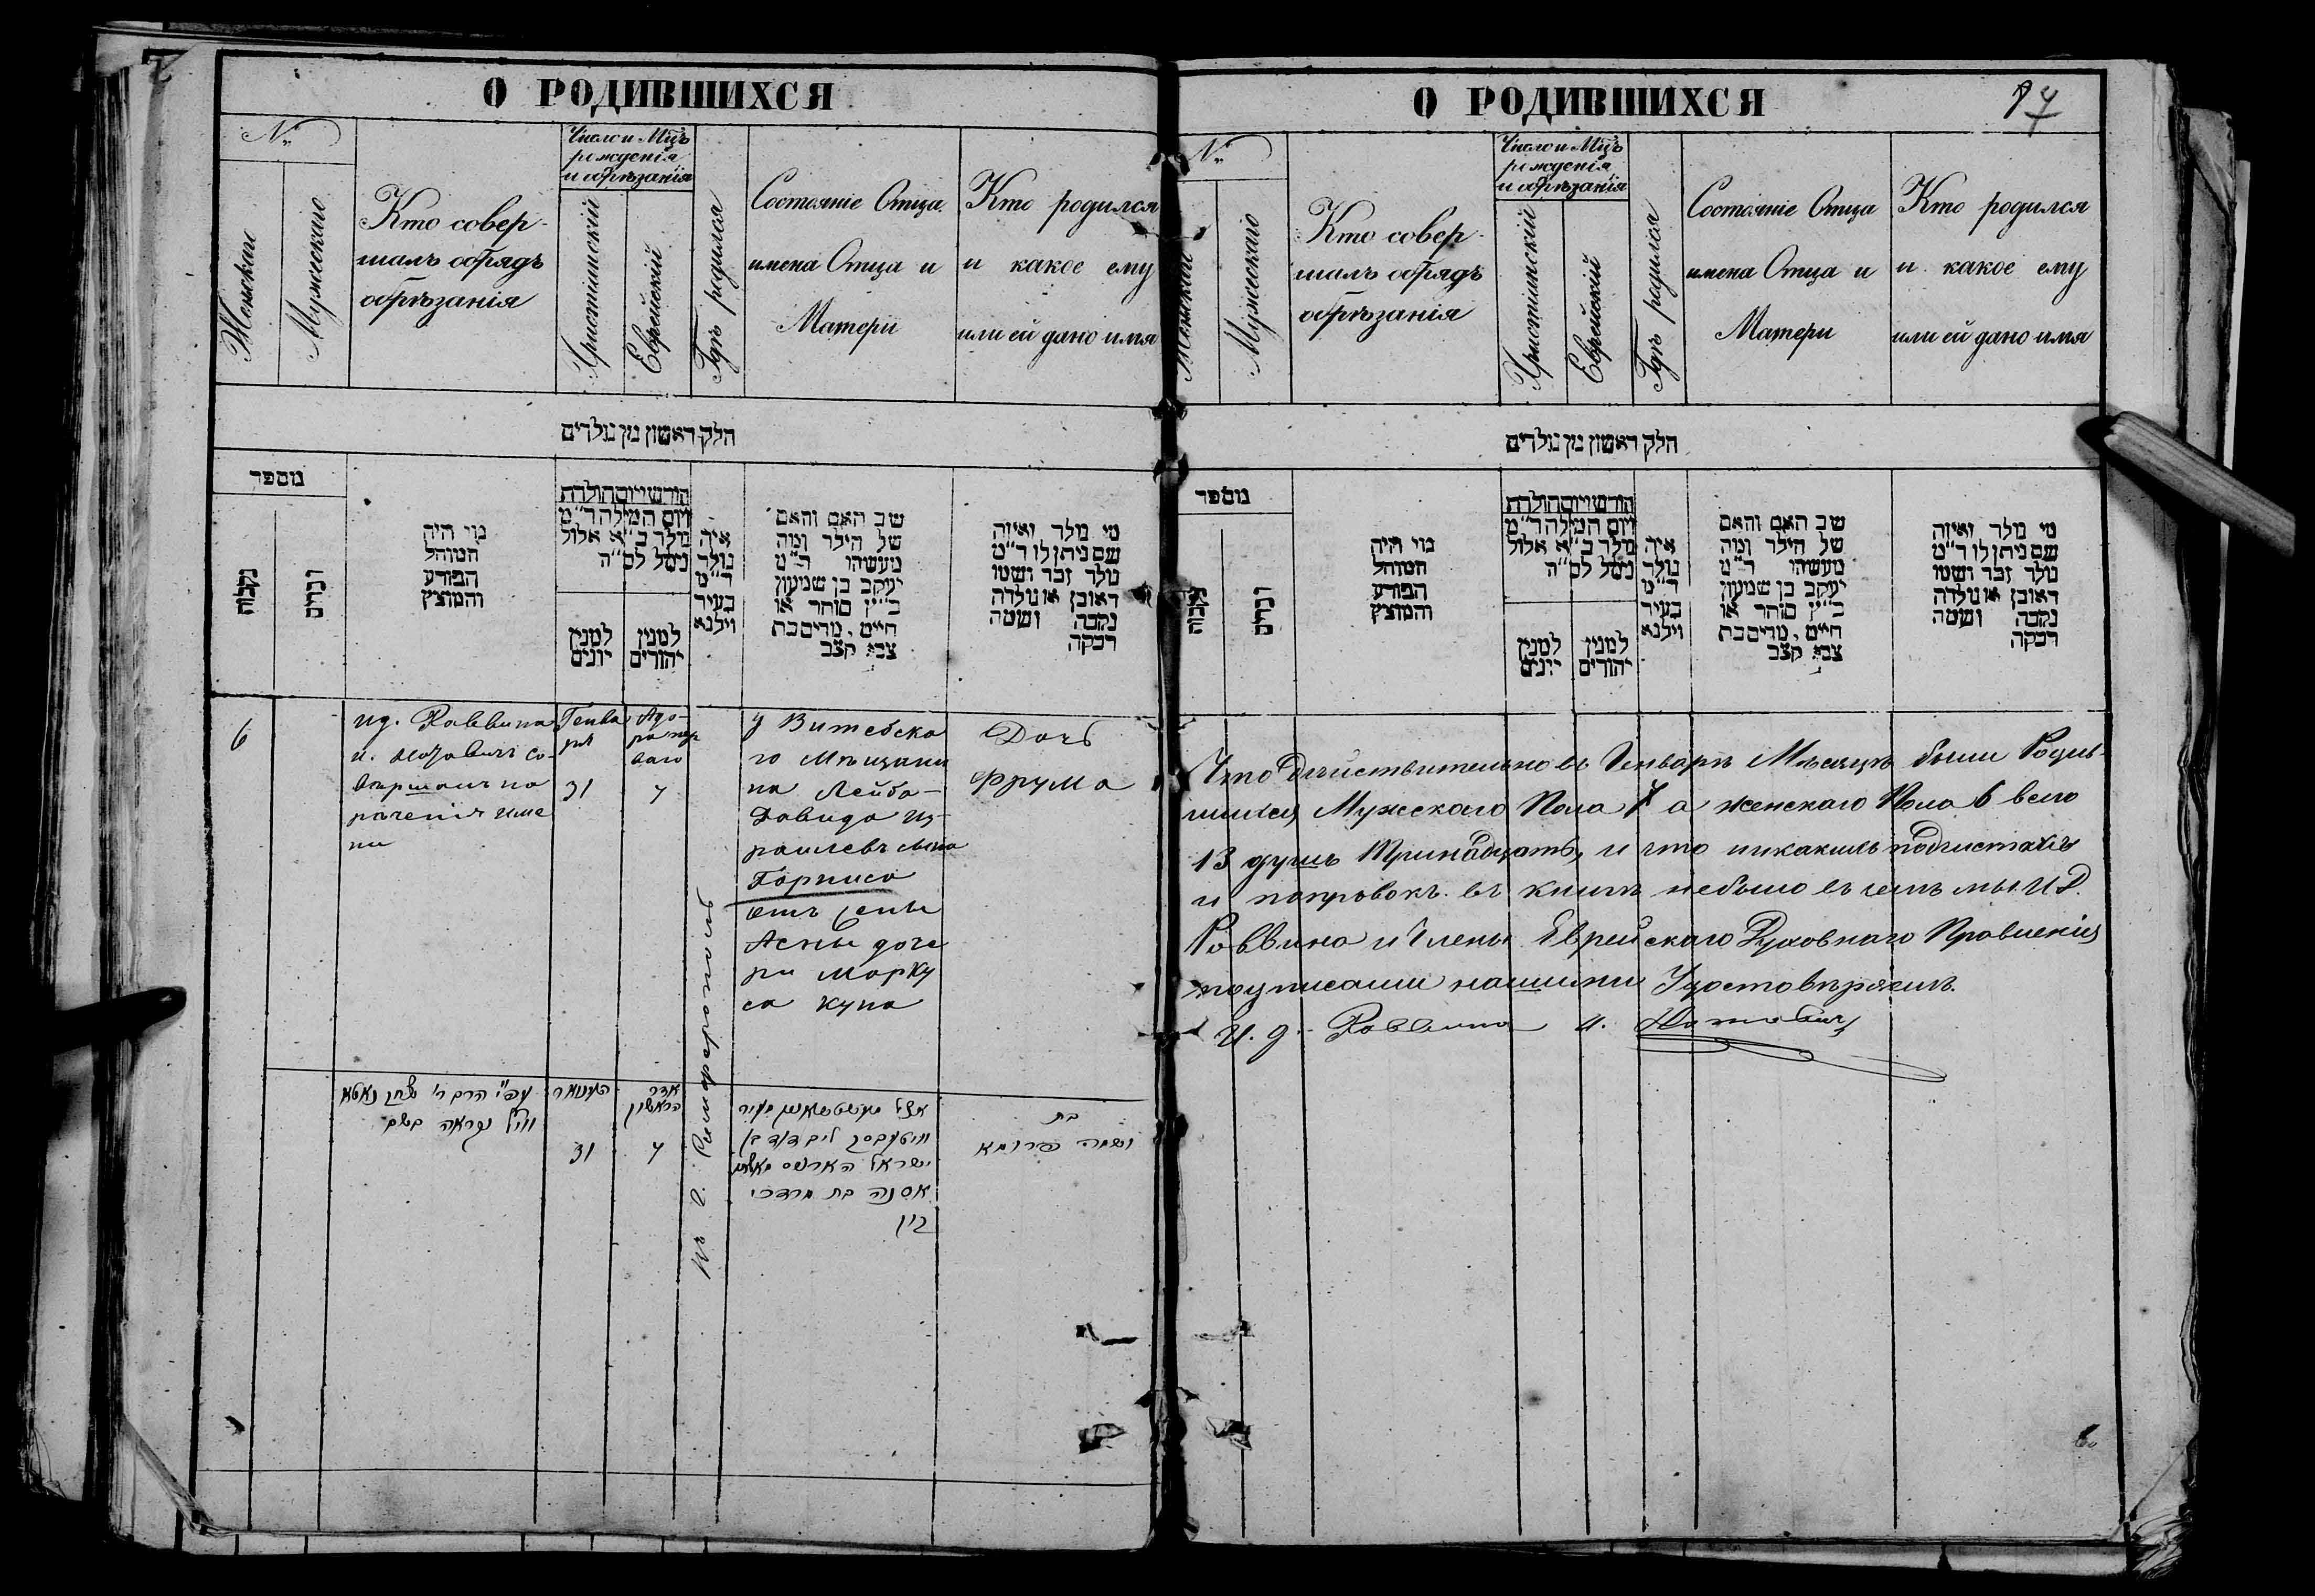 О РОДИВШИХСЯ
№
Женскаго
Мужескаго
Кто совер-
шалъ обрядъ
обрѣзанія
Число и Мцъ
рожденія
и обрѣзанія
Христіянскій
Еврейскій
Гдѣ родился
Состояніе Отца
имена Отца и
Матери
Кто родился
и какое ему
или ей дано имя
חלק ראשון מן נולדים
מספר
נקבות
זכרים
מי היה
המוהל
הפורע
והמוצץ
חודש ויום הולדת
ויום המילה ד״מ
נולד ב״א אלול
נימל לס״ה
למנין
יונים
למנין
יהודים
איה
נולד
ד״מ
בעיר
וילנא
שם האב והאם
של הילד ומה
מעשיהו ד״מ
יעקב בן שמעון
כ״ץ סוחר או
חייט, מרים בת
צבי קצב
מי נולד ואיזה
שם ניתן לו ד״מ
נולד זכר ושמו
ראובן או נולדה
נקבה ושמה
רבקה
6
ид. Раввина
и.
вершалъ на
речения име
ни
Генва
ря
31
Адо-
ра пер
ваго
7
въ г. Симферополь
у Витебско
го Мещани
на Лейба-
Давида Из-
раилевъ сына
отъ жены
Асны доче
ри Марку
са купа
Дочь
Фрума
עפ״י הרב ר׳
נקראה בשם
31
אדר
הראשון
7
אצל
ליב דוד בן
ישראל
אסנה בת מרדכי
בת
ושמה פרומא
О РОДИВШИХСЯ
17
№
Женскаго
Мужескаго
Кто совер-
шалъ обрядъ
обрѣзанія
Число и Мцъ
рожденія
и обрѣзанія
Христіянскій
Еврейскій
Гдѣ родился
Состояніе Отца
имена Отца и
Матери
Кто родился
и какое ему
или ей дано имя
חלק ראשון מן נולדים
מספר
נקבות
זכרים
מי היה
המוהל
הפורע
והמוצץ
חודש ויום הולדת
ויום המילה ד״מ
נולד ב״א אלול
נימל לס״ה
למנין
יונים
למנין
יהודים
איה
נולד
ד״מ
בעיר
וילנא
שם האב והאם
של הילד ומה
מעשיהו ד״מ
יעקב בן שמעון
כ״ץ סוחר או
חייט, מרים בת
צבי קצב
מי נולד ואיזה
שם ניתן לו ד״מ
נולד זכר ושמו
ראובן או נולדה
נקבה ושמה
רבקה
Что Действительно въ Генваре Месяце были Родив-
шихся Мужескаго Пола 7 а женскаго Пола 6 всего
13 душъ Тринадцать, и что никакихъ подчистокъ
и поправокъ въ книге небыло въ чемъ мы И Д.
Раввина и Члены Еврейскаго Духовнаго Правления
подписами нашими Удостовѣряемъ.
И. д. Раввина